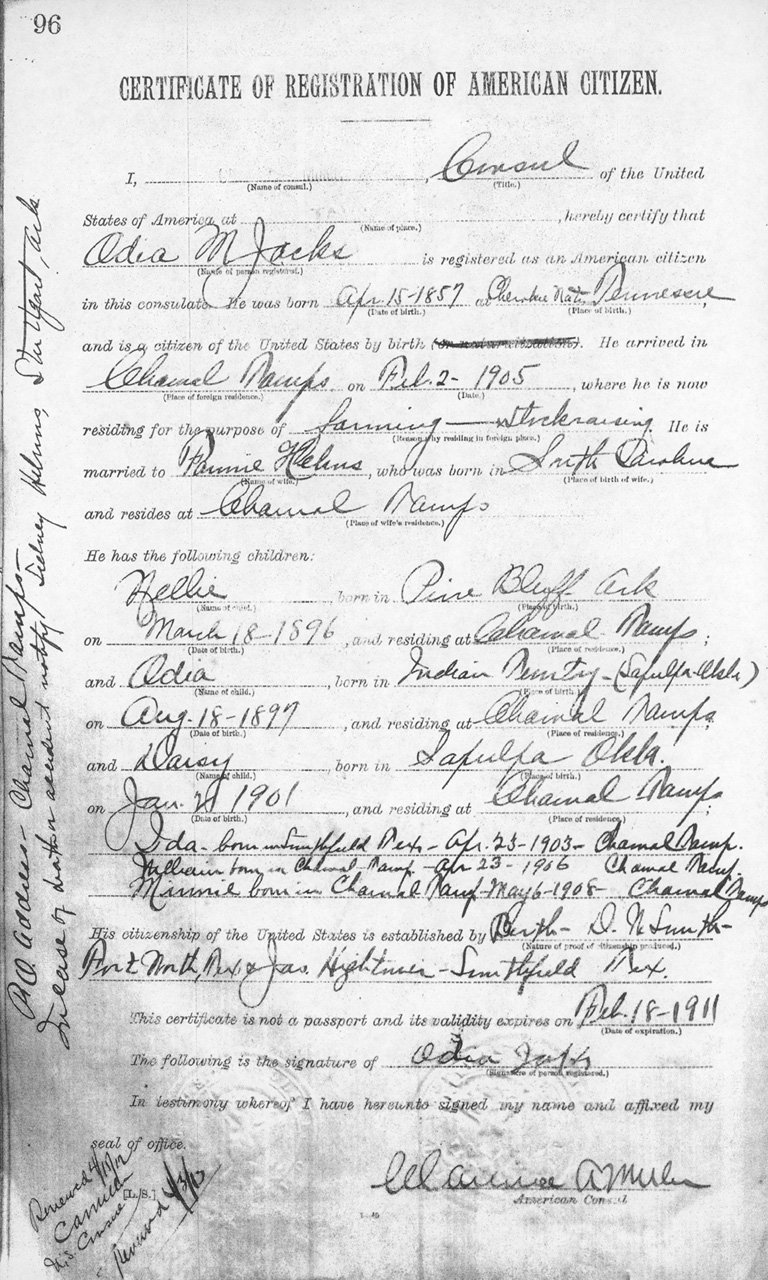 96
CERTIFICATE OF REGISTRATION OF AMERICAN CITIZEN.
I, , Consul of the United
(Name of consul.) (Title.)
States of America at , hereby certify that
(Name of place.)
Odia M Jacks is registered as an American citizen
(Name of person registered.)
in this consulate. He was born Apr. 15-1857 at Cherokee Nat. Tennessee,
(Date of birth.) (Place of birth.)
and is a citizen of the United States by birth (or naturalization). He arrived in
Chamal Tamps on Feb. 2- 1905, where he is now
(Place of foreign residence.) (Date.)
residing for the purpose of farming - Stockraising. He is
(Reason why residing in foreign place.)
married to Fannie Helms, who was born in South Carolina
(Name of wife.) (Place of birth of wife.)
and resides at Chamal Tamps
(Place of wife's residence.)
He has the following children:
Nellie born in Pine Bluff Ark
(Name of child.) (Place of birth.)
on March 18-1896, and residing at Chamal Tamps;
(Date of birth.) (Place of residence.)
and Odia born in Indian Territy - (Sapulpa-Okla)
(Name of child.) (Place of birth.)
on Aug. 18-1897, and residing at Chamal Tamps
(Date of birth.) (Place of residence.)
and Daisy born in Sapulpa Okla.
(Name of child.) (Place of birth.)
on Jan. 1901, and residing at Chamal Tamps
(Date of birth.) (Place of residence.)
Ida - born in Smithfield Tex - Apr. 23-1903 - Chamal Tamp.
William born in Chamal Tamp - Apr 23-1906 Chamal Tamp.
Minnie born in Chamal Tamp - May 6-1908 - Chamal Tamps
His citizenship of the United States is established by Birth - D. N. Smith -
(Nature of proof of citizenship produced.)
Fort Worth, Tex & Jas. Hightower - Smithfield Tex.
This certificate is not a passport and its validity expires on Feb. 18-1911
(Date of expiration.)
The following is the signature of Odia Jacks
(Signature of person registered.)
In testimony whereof I have hereunto signed my name and affixed my
seal of office.
Clarence A Miller
[L.S.]
American Consul
P.O. Address - Chamal Tamps -
In case of death or accident notify Sidney Helms, Stuttgart, Ark
Renewed
Renewed 4/3/13